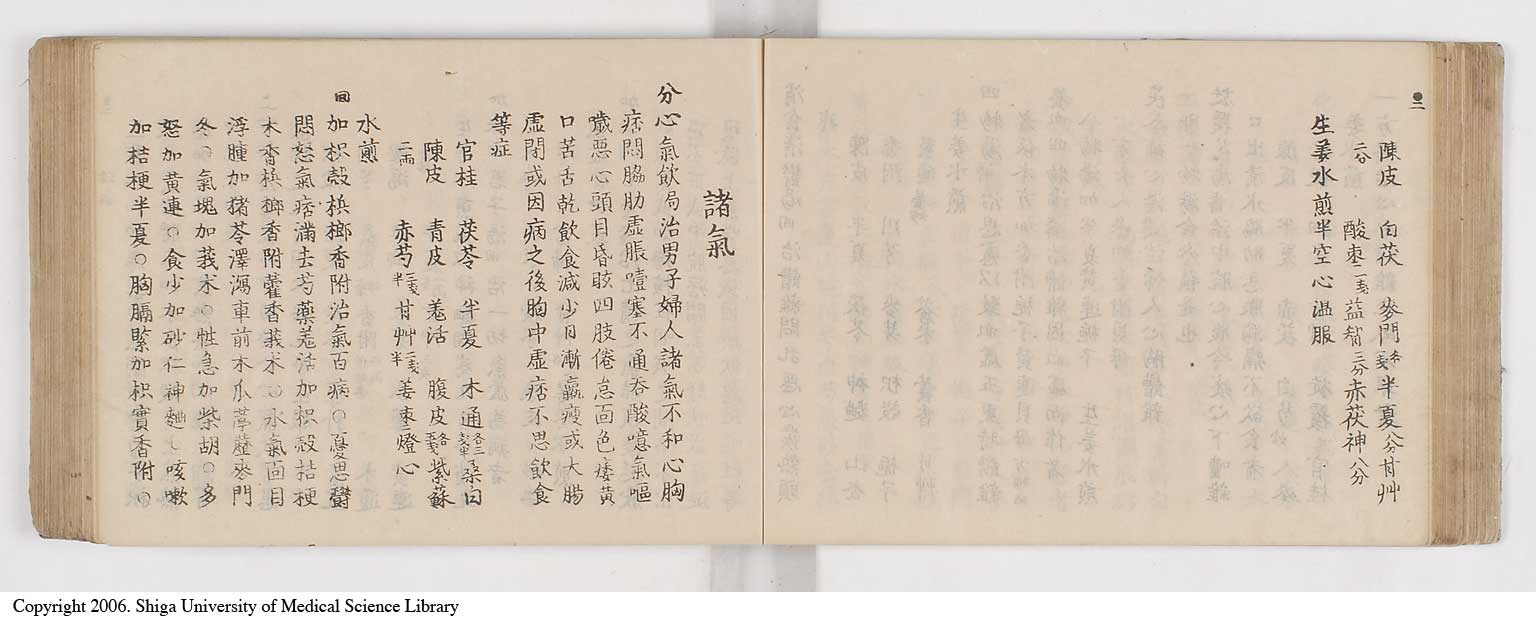 陳皮 白茯 麥門各一戔半夏八分甘艸
二分 酸枣二戔益智三分赤茯神八分
生姜水煎半空心温服
諸氣
分心氣飲局治男子婦人諸氣不和心胸
痞悶脇肋虚脹噎塞不通吞酸噫氣嘔
噦惡心頭目昏眩四肢倦怠面色痿黄
口苦舌乾飲食減少日漸羸瘦或大腸
虚閉或因病之後胸中虚痞不思飲食
等症
官桂 茯苓 半夏 木通各三戔半桑白
陳皮 青皮 羗活 腹皮各一戔紫蘇
二両 赤芍二戔半甘艸二戔半姜枣燈心
水煎
回加枳殻梹榔香附治氣百病○憂思鬱
悶怒氣痞滿去芍藥羗活加枳殻桔梗
木香梹榔香附藿香莪朮○水氣面目
浮腫加猪苓澤瀉車前木瓜葶藶麥門
冬○氣塊加莪朮○性急加柴胡○多
怒加黄連○食少加砂仁神麯○咳嗽
加桔梗半夏○胸膈緊加枳實香附○
Copyright 2006. Shiga University of Medical Science Library